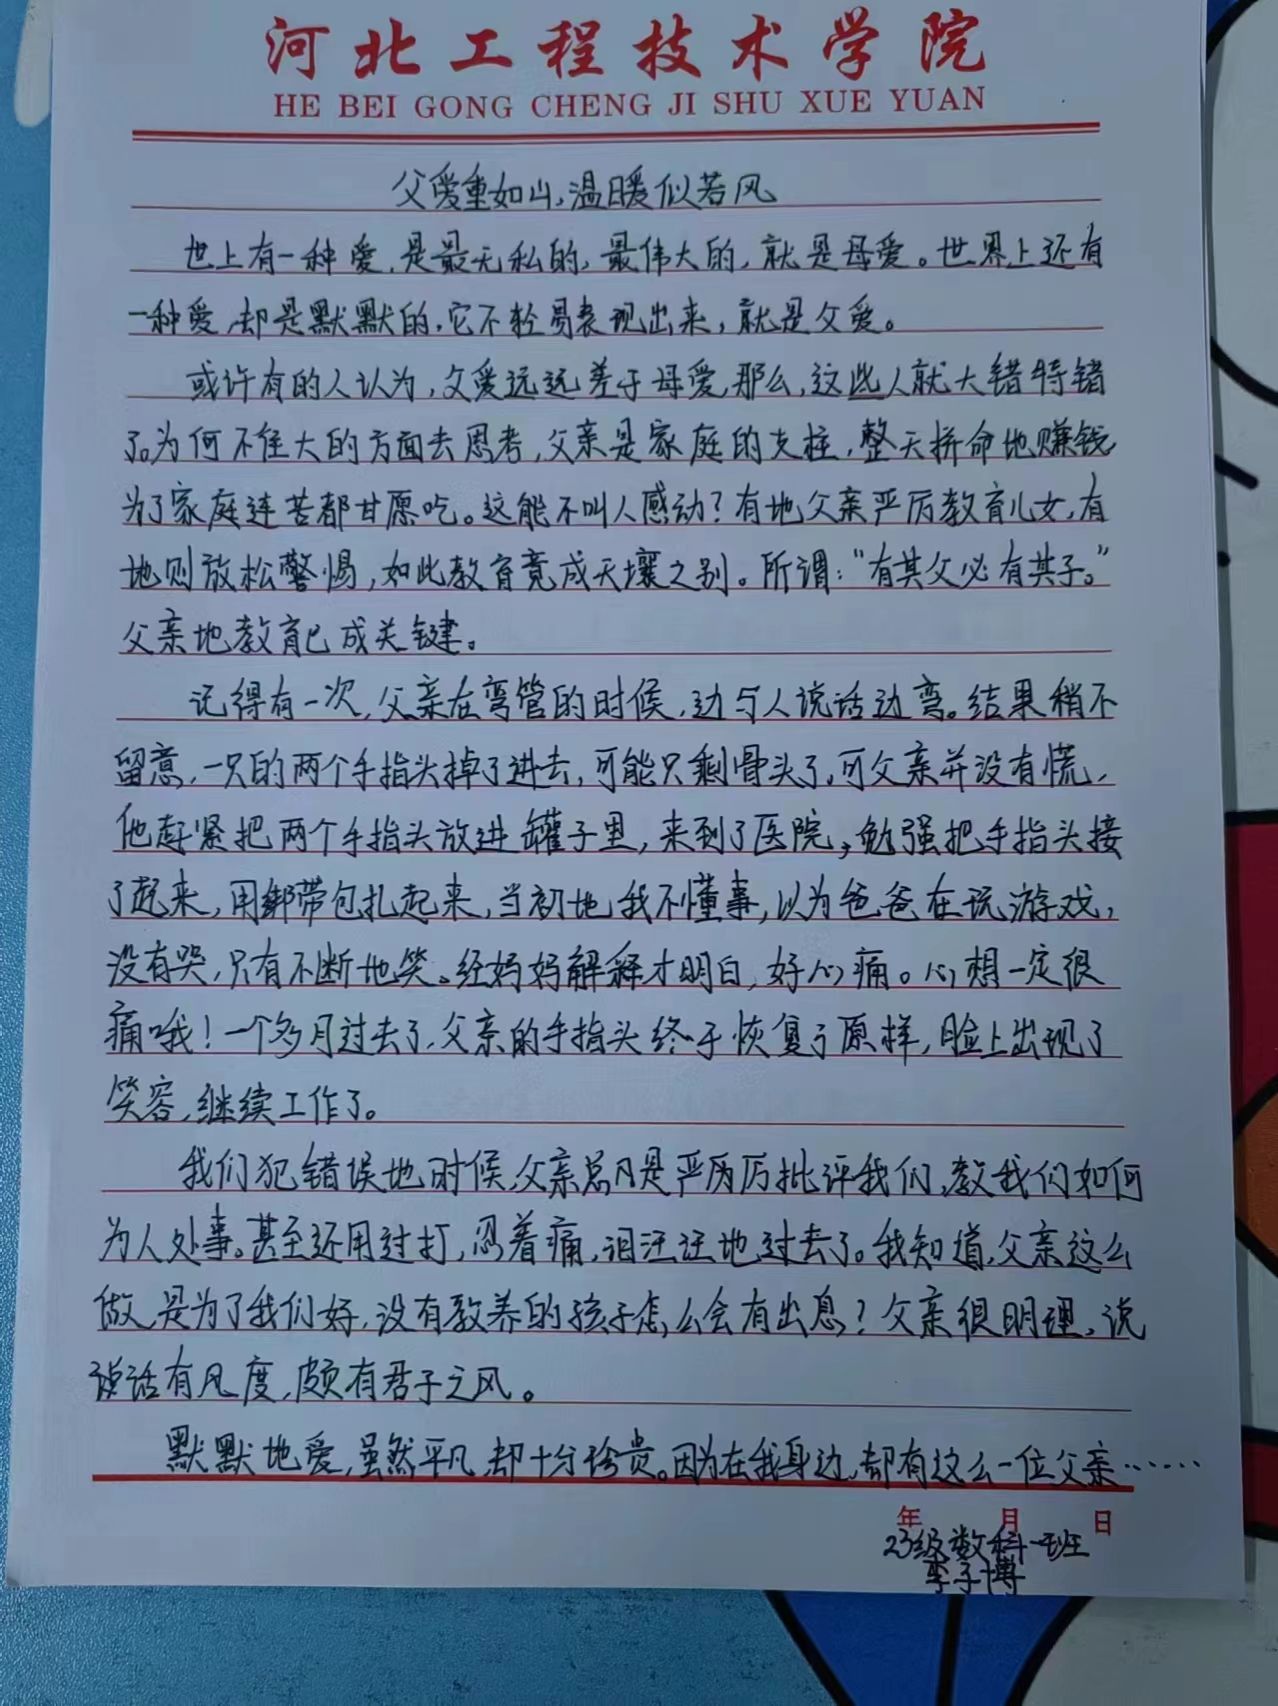 河北工程技术学院
HE BEI GONG CHENG JI SHU XUE YUAN
父爱重如山,温暖似若风
世上有一种爱,是最无私的,最伟大的,就是母爱。世界上还有
一种爱,却是默默的,它不轻易表现出来,就是父爱。
或许有的人认为,父爱远远差于母爱,那么,这些人就大错特错
了。为何不往大的方面去思考,父亲是家庭的支柱,整天拼命地赚钱
为了家庭连苦都甘愿吃。这能不叫人感动?有地父亲严厉教育儿女,有
地则放松警惕,如此教育竟成天壤之别。所谓:“有其父必有其子。”
父亲地教育已成关键。
记得有一次,父亲在弯管的时候,边与人说话边弯。结果稍不
留意,一只的两个手指头掉了进去,可能只剩骨头了,可父亲并没有慌,
他赶紧把两个手指头放进罐子里,来到了医院,勉强把手指头接
了起来,用绑带包扎起来,当初地我不懂事,以为爸爸在玩游戏,
没有哭,只有不断地笑。经妈妈解释才明白,好心痛。心想一定很
痛哦!一个多月过去了,父亲的手指头终于恢复了原样,脸上出现了
笑容,继续工作了。
我们犯错误地时候,父亲总凡是严历厉批评我们,教我们如何
为人处事。甚至还用过打,忍着痛,泪汪汪地过去了。我知道,父亲这么
做,是为了我们好,没有教养的孩子怎么会有出息?父亲很明理,说
话有风度,颇有君子之风。
默默地爱,虽然平凡,却十分珍贵。因为在我身边,却有这么一位父亲……
年 月 日
23级数科一班
李子博